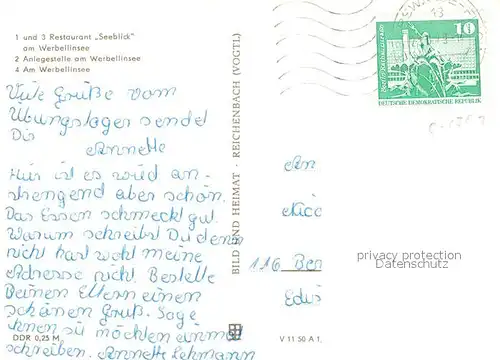 1 und 3 Restaurant „Seeblick"
am Werbellinsee
2 Anlegestelle am Werbellinsee
4 Am Werbellinsee
Viele Grüße vom
Übungslager sendet
Dir
Annette
Hier ist es
strengend aber schön.
Das Essen schmeckt gut.
Warum schreibst Du denn
nicht hast wohl meine
Adresse nicht. Bestelle
Deinen Eltern einen
schönen Gruß. Sage
ihnen sie möchten einmal
schreiben. Annette Lehmann
DDR 0,25 M
BILD UND HEIMAT · REICHENBACH (VOGTL)
V 11 50 A 1,
10
DEUTSCHE DEMOKRATISCHE REPUBLIK
An
Nico
116 Ber
privacy protection
Datenschutz